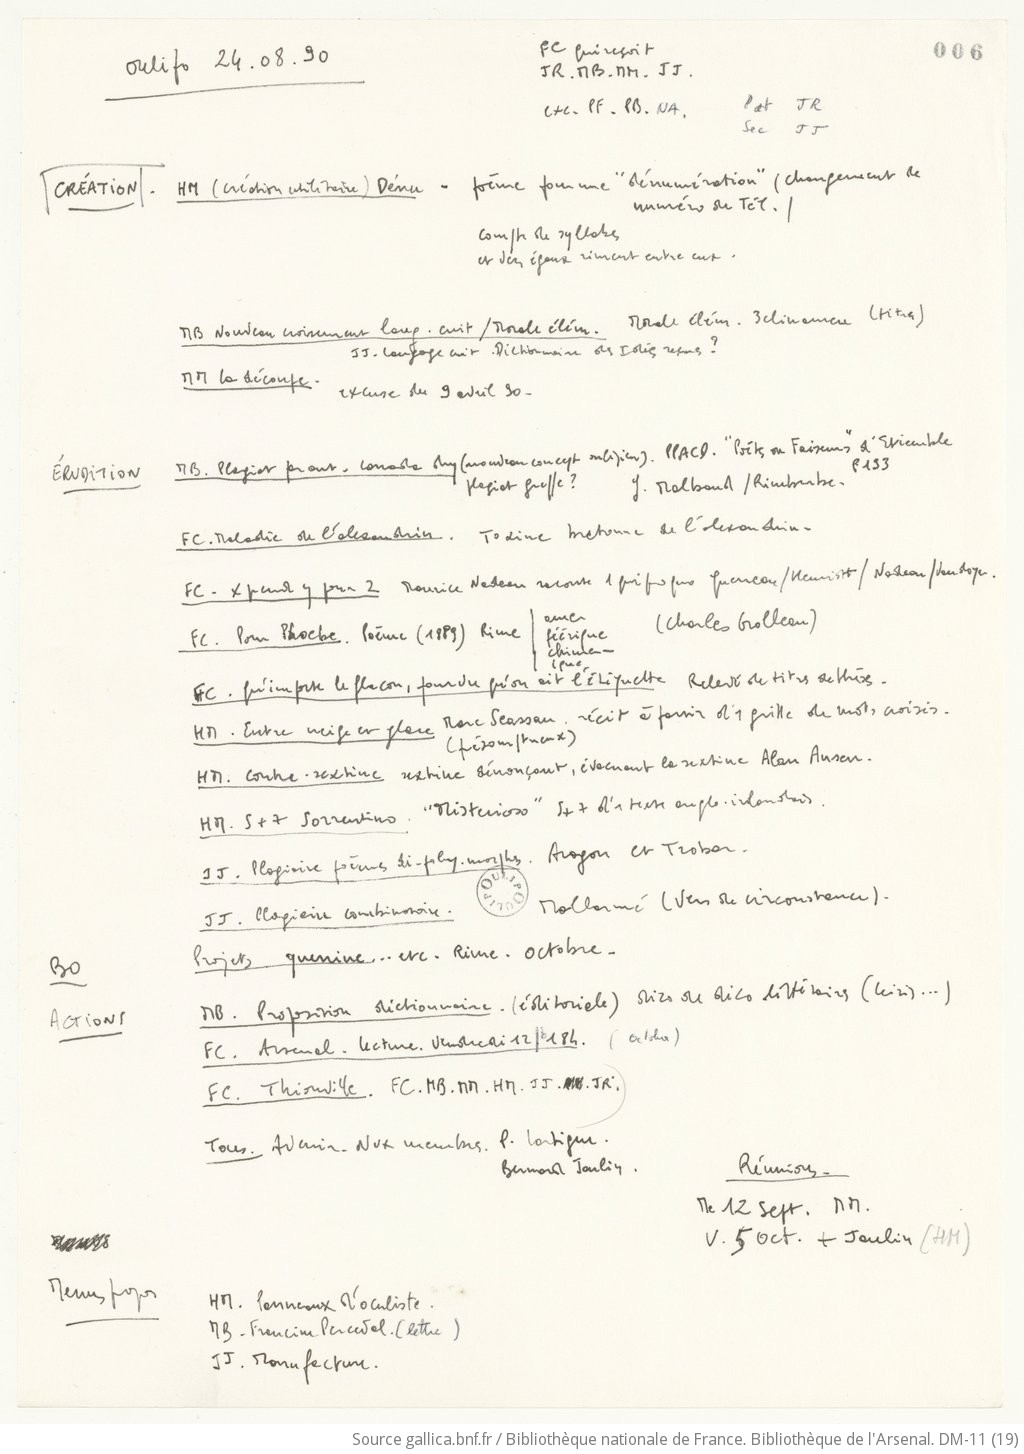 oulipo 24.08.90
FC qui reçoit
JR. MB. MM. JJ.
exc. PF. PB. NA.
Pdt JR
Sec JJ
006
CRÉATION. HM (création utilitaire) Dénu - poème pour une "dénumération" (changement de
numéro de Tél.)
compte de syllabes
et vers égaux riment entre eux.
MB Nouveau croisement lang. cuit / Morale élém. Morale élém. 3 clinamen (titres)
JJ. langage cuit. Dictionnaire des Idées reçues ?
MM La découpe. excuse du 9 avril 90-
ÉRUDITION MB. Plagiat par ant. (nouveau concept oulipien). PPACD. "Poètes ou Faiseurs" d'Etiemble
P 153
plagiat greffe ? G. Malbaud / Rimbarbe.
FC. Maladie de l'alexandrin. Toxine bretonne de l'alexandrin-
FC - x prend y pour z Maurice Nadeau raconte 1 quiproquo Queneau / Henriott / Nadeau / Vaudoyer.
FC. Pour Phoebe. Poème (1989) Rime amer (Charles Grolleau)
féérique
chimer-
ique
FC. Qu'importe le flacon, pourvu qu'on ait l'étiquette Relevé de titres de thèses-
HM. Entre neige et glace Marc Seassau. récit à partir d'1 grille de mots croisés-
(présomptueux)
HM. Contre-sextine sextine dénonçant, évacuant la sextine Alan Ansen.
HM. S+7 Sorrentino. "Misterioso" S+7 d'1 texte anglo-irlandais.
JJ. Plagiaire poèmes di-poly-morphes. Aragon et Trobar.
OULIPO OULIPO
JJ. Plagiaire combinatoire. Mallarmé (Vers de circonstance).
BO Projets quenine... etc. Rime. Octobre-
ACTIONS MB. Proposition dictionnaire. (éditoriale) dico de dico littéraires (Leiris...)
FC. Arsenal. lecture. Vendredi 12 / 18h. (octobre)
FC. Thionville. FC. MB. MM. HM. JJ. JR.
Tous. Avenir. Nvx membres. P. Lartigue.
Bernard Jaulin.
Réunions-
Me 12 Sept. MM.
V. 5 Oct. + Jaulin (HM)
Menus propos
HM. Panneaux d'oculiste.
MB - Francine Percival. (lettre)
JJ. Manufacture.
Source gallica.bnf.fr / Bibliothèque nationale de France. Bibliothèque de l'Arsenal. DM-11 (19)